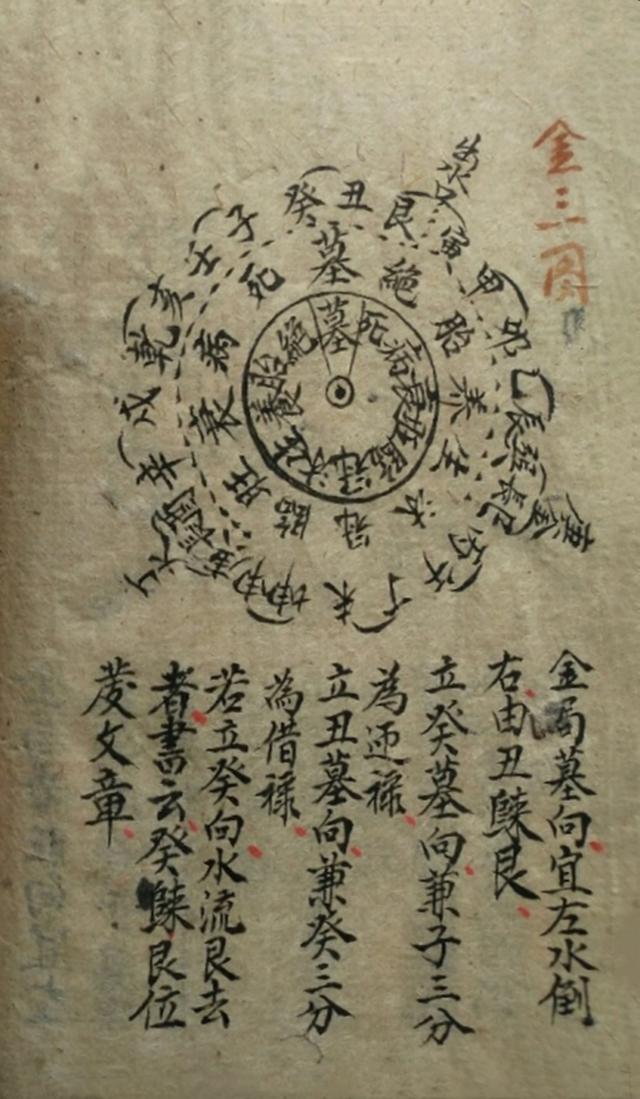 金三局
出水口
癸丑艮寅甲卯乙辰巽巳丙午丁未坤申庚酉辛戌乾亥壬子
墓絕胎養生沐冠臨旺衰病死
墓死病衰旺臨冠沐生養胎絕
金局墓向宜左水倒
右由丑歸艮
立癸墓向兼子三分
為迎祿
立丑墓向兼癸三分
為借祿
若立癸向水流艮去
者書云癸歸艮位
發文章